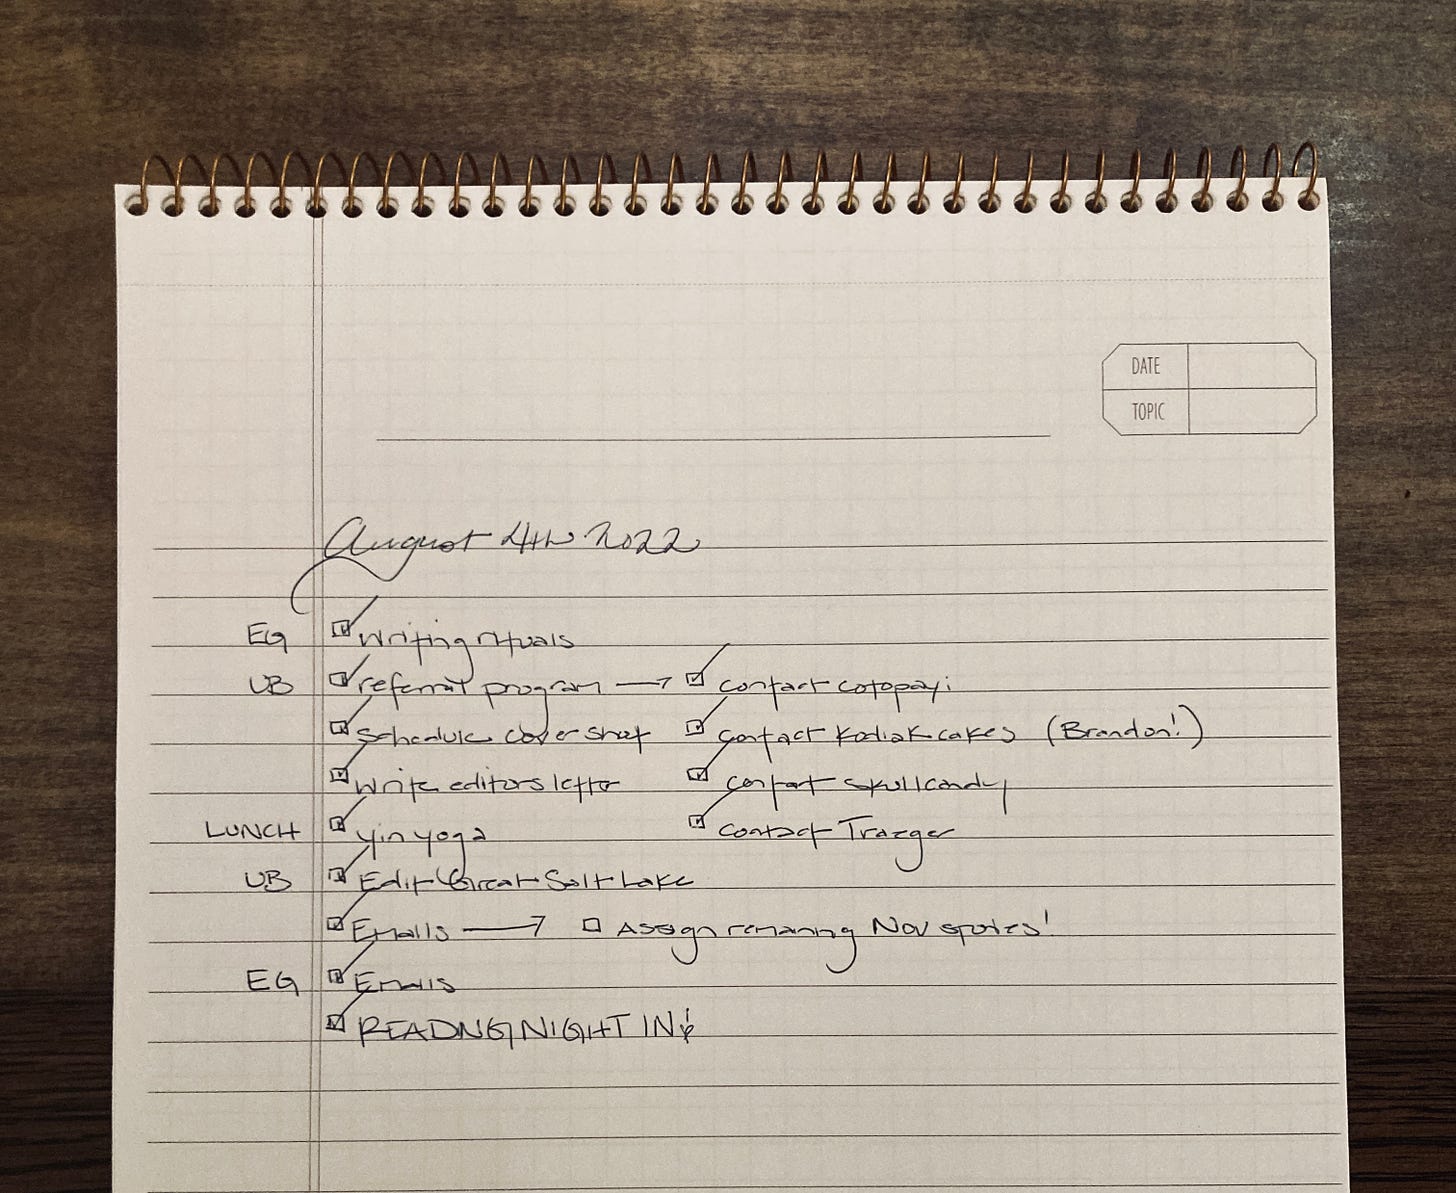 DATE
TOPIC
August 4th 2022
EG writing rituals
UB referral program → contact cotopaxi
schedule cover shoot contact Kodiak cakes (Brandon!)
write editors letter contact skullcandy
LUNCH yin yoga contact Traeger
UB Edit Great Salt Lake
Emails → Assign remaining Nov stories!
EG Emails
READING NIGHT IN!